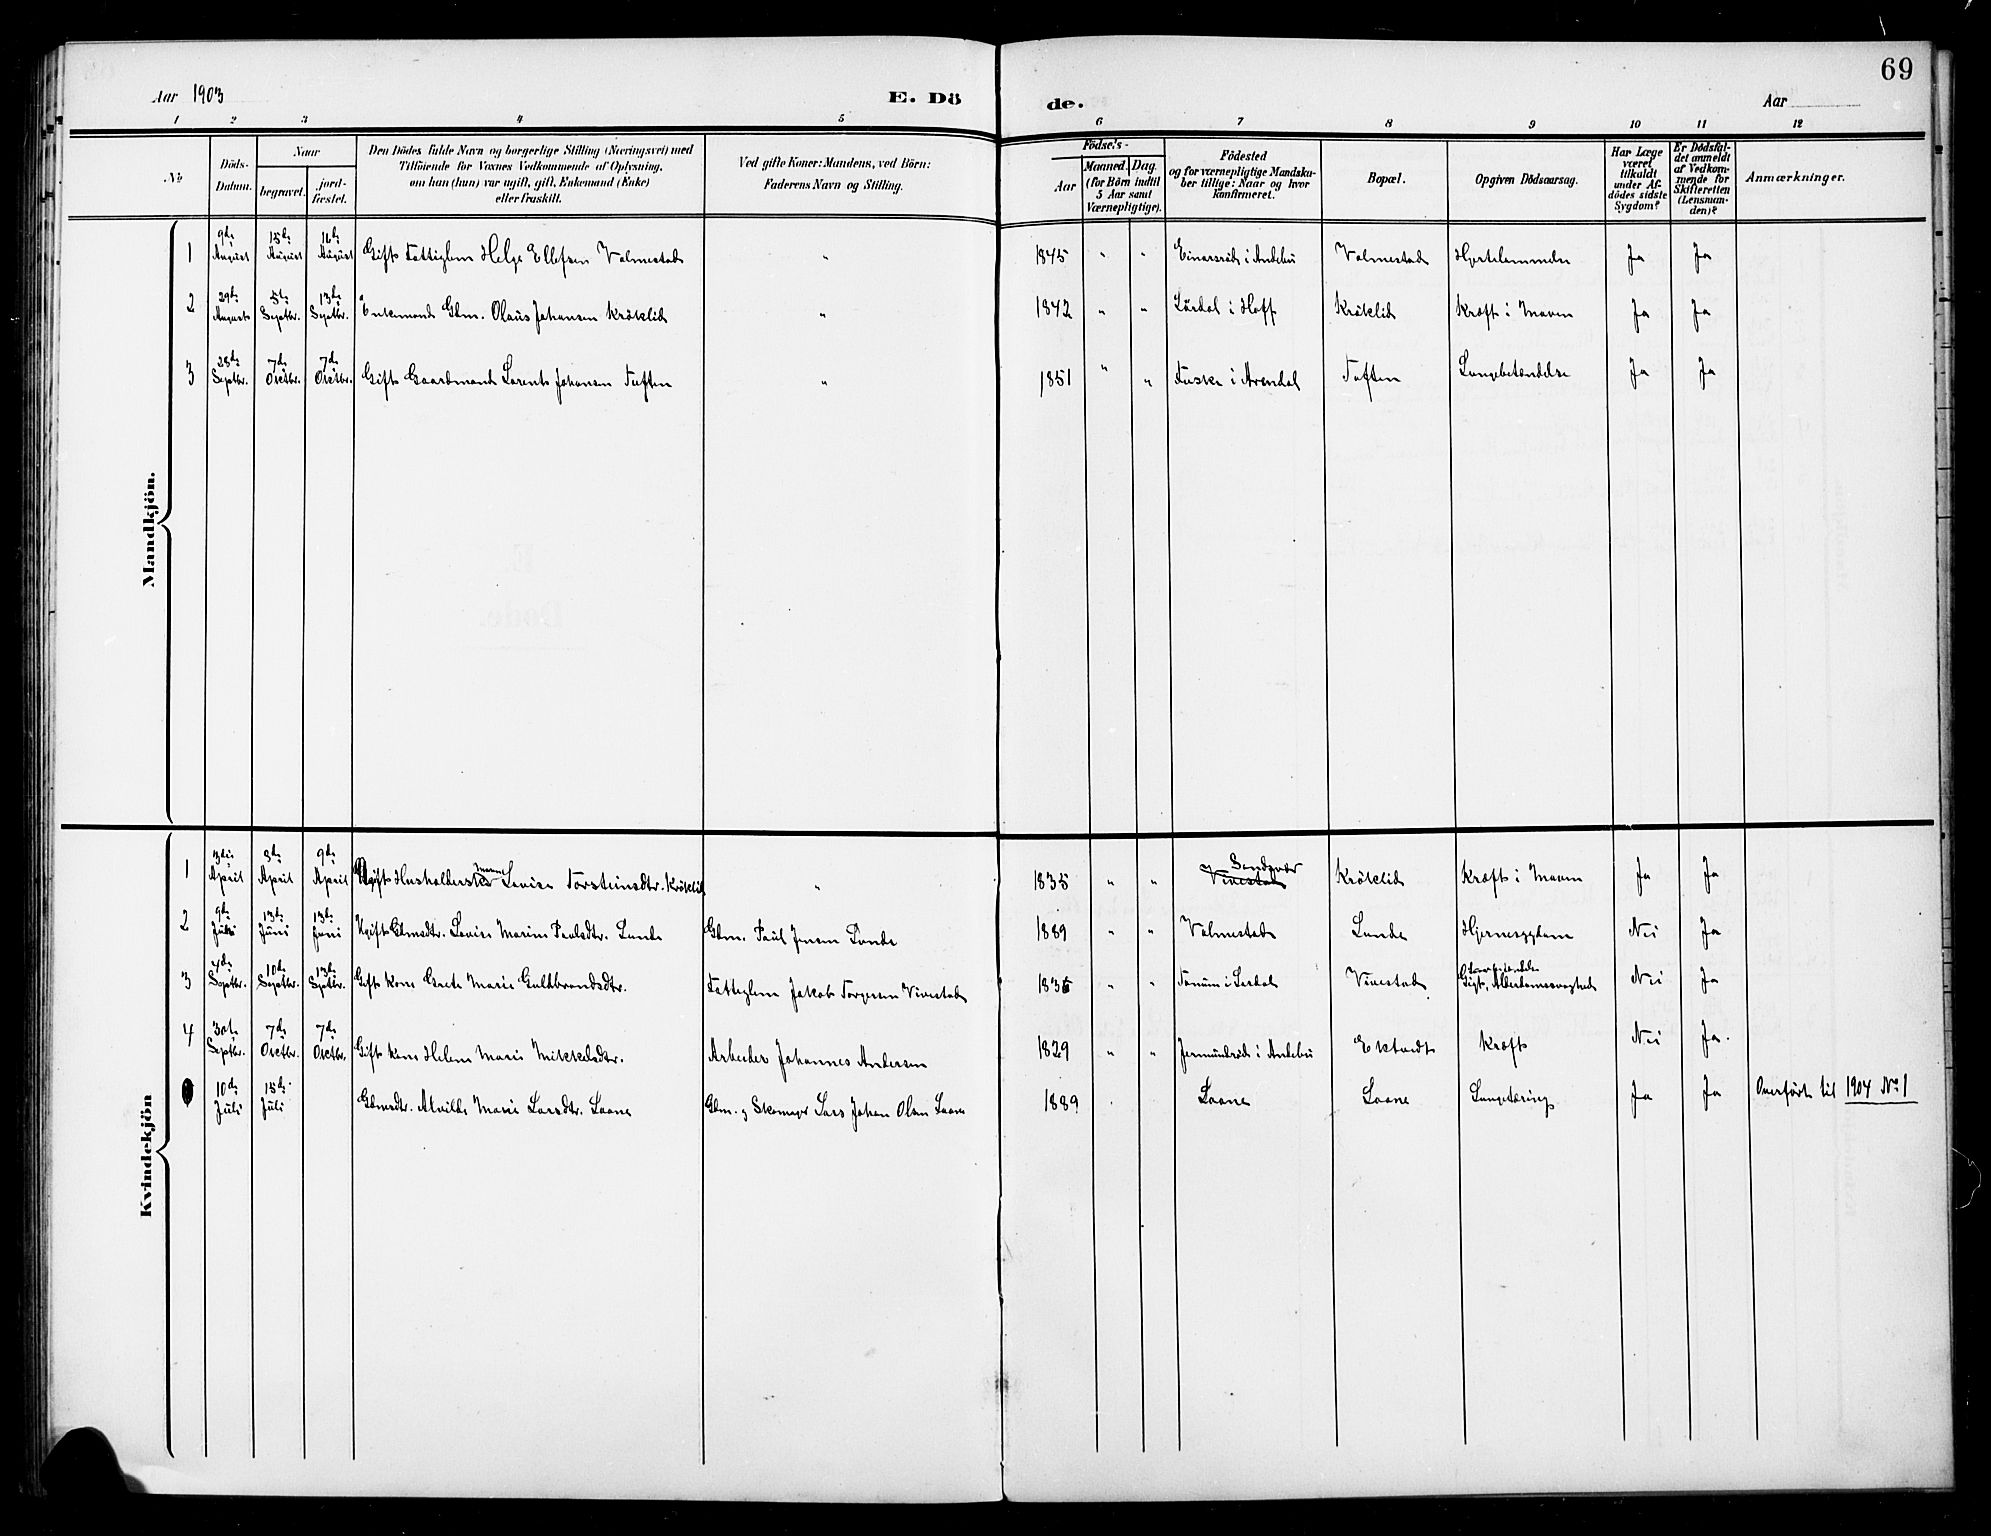 69
Aar 1903
E. Dö
de.
Aar
1 2 3 4 5 6 7 8 9 10 11 12
No
Döds-
Datum.
Naar
begravet.
jord-
fæstet.
Den Dödes fulde Navn og borgerlige Stilling (Næringsvei) med
Tilföiende for Voxnes Vedkommende af Oplysning,
om han (hun) var ugift, gift, Enkemand (Enke)
eller fraskilt.
Ved gifte Koner: Mandens, ved Börn:
Faderens Navn og Stilling.
Födsels-
Aar
Maaned. Dag.
(for Börn indtil
5 Aar samt
Værnepligtige).
Födested
og for værnepligtige Mandska-
ber tillige: Naar og hvor
konfirmeret.
Bopæl.
Opgiven Dödsaarsag.
Har Læge
været
tilkaldt
under Af-
dödes sidste
Sygdom?
Er Dödsfal-
det anmeldt
af Vedkom-
mende for
Skifteretten
(Lensman-
den)?
Anmærkninger.
Mandkjön.
1 9de August 15de August 16de August Gift Fattiglem Helge Ellefsen Valmestad " 1845 " " Einarsröd i Andebu Valmestad Hjertelammelse Ja Ja
2 29de August 5te Septbr. 13de Septbr. Enkemand Gbm. Olaus Johansen Kröklid " 1842 " " i Hoff Kröklid Kræft i Maven Ja Ja
3 28de Septbr. 7de Octbr. 7de Octbr. Gift Gaardmand Lorents Johansen Tuften " 1851 " " i Arendal Tuften Lungebetændelse Ja Ja
Kvindekjön
1 3die April 8de April 9de April Ugift Husholderske Lovise Torsteinsdtr. Kröklid " 1835 " " Sandsvær Vivestad Kröklid Kræft i Maven Ja Ja
2 9de Juni 13de Juni 13de Juni Ugift Gbmsdtr. Lovise Marie Paulsdtr. Lunde Gbm. Paul Jensen Lunde 1889 " " Valmestad Lunde Hjernesygdom Nei Ja
3 4de Septbr. 10de Septbr. 13de Septbr. Gift Kone Grete Marie Guldbrandsdtr. Fattiglem Jakob Torgersen Vivestad 1835 " " Fanum i Lardal Vivestad Gigt, Alderdomssvaghed Nei Ja
4 30te Septbr. 7de Octbr. 7de Octbr. Gift Kone Helene Marie Mikkelsdtr. Arbeider Johannes Andersen 1829 " " Jermundröd i Andebu Ektvedt Kræft Nei Ja.
10de Juli 15de Juli Gbmsdtr. Alvilde Marie Larsdtr. Laane Gbm. og Skomager Lars Johan Olsen Laane 1889 Laane Laane Lungetæring Ja Ja Overført til 1904 No 1